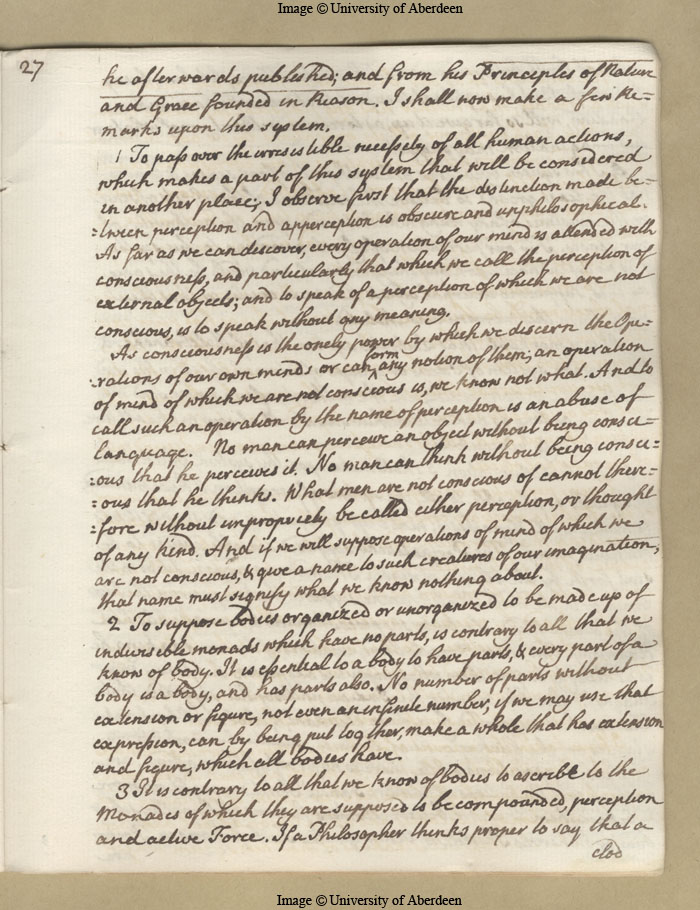 Image © University of Aberdeen
27
he afterwards published; and from his Principles of Nature
and Grace founded in Reason. I shall now make a few Re=
marks upon this system.
1 To pass over the irresistible necessity of all human actions,
which makes a part of this system that will be considered
in another place; I observe first that the distinction made be-
=tween perception and apperception is obscure and unphilosophical.
As far as we can discover, every operation of our mind is attended with
consciousness, and particularly that which we call the perception of
external objects; and to speak of a perception of which we are not
conscious, is to speak without any meaning.
As consciousness is the onely power by which we discern the Ope-
-rations of our own minds or can form any notion of them; an operation
of mind of which we are not conscious is, we know not what. And to
call such an operation by the name of perception is an abuse of
language. No man can perceive an object without being consci-
=ous that he perceives it. No man can think without being consci=
=ous that he thinks. What men are not conscious of cannot there=
=fore without impropriety be called either perception, or thought
of any kind. And if we will suppose operations of mind of which we
are not conscious, & give a name to such creatures of our imagination,
that name must signify what we know nothing about.
2 To suppose bodies organized or unorganized to be made up of
indivisible monads which have no parts, is contrary to all that we
know of body. It is essential to a body to have parts, & every part of a
body is a body, and has parts also. No number of parts without
extension or figure, not even an infinite number, if we may use that
expression, can by being put together, make a whole that has extension
and figure, which all bodies have.
3 It is contrary to all that we know of bodies to ascribe to the
Monades of which they are supposed to be compounded, perception
and active Force. If a Philosopher thinks proper to say that a
clod
Image © University of Aberdeen